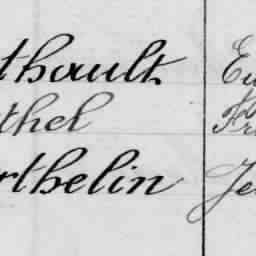 thault Eu
thel Fr
rthelin Je